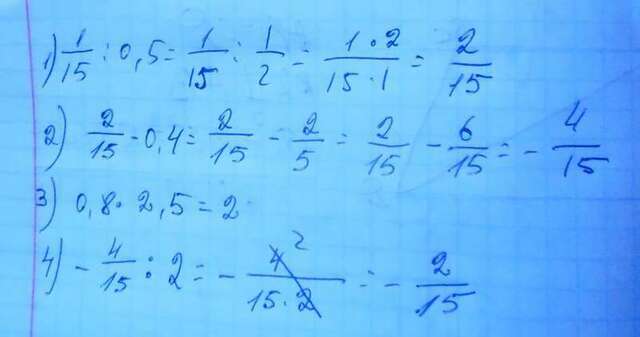 1) 1/15 : 0,5 = 1/15 : 1/2 = 1·2/15·1 = 2/15
2) 2/15 - 0,4 = 2/15 - 2/5 = 2/15 - 6/15 = - 4/15
3) 0,8 · 2,5 = 2
4) - 4/15 : 2 = - 4 2/15·2 = - 2/15